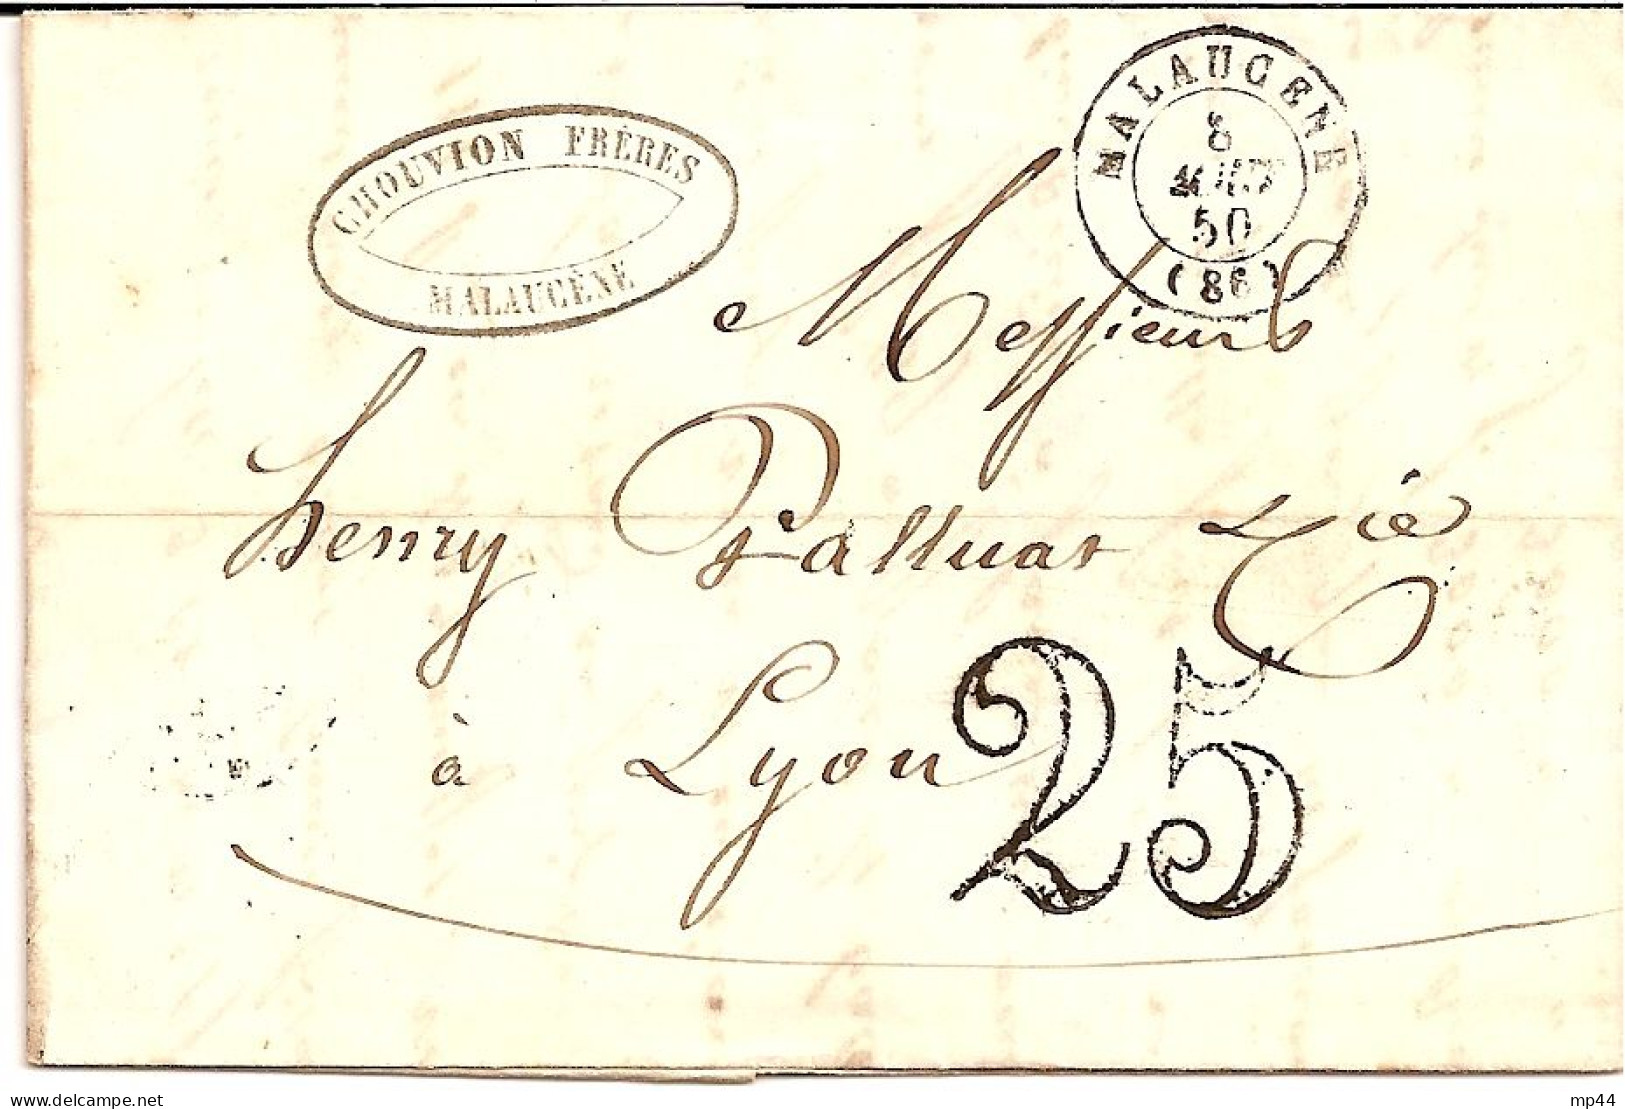 CHOUVION FRÈRES
MALAUCÈNE
MALAUCENE
8
50
(86)
Messieurs
henry Palluat & Cie
à Lyon
25
delcampe.net
mp44